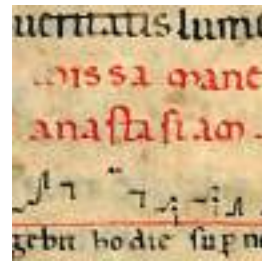 ueritatis lume
missa mane
anastasiam
gebit hodie sup n